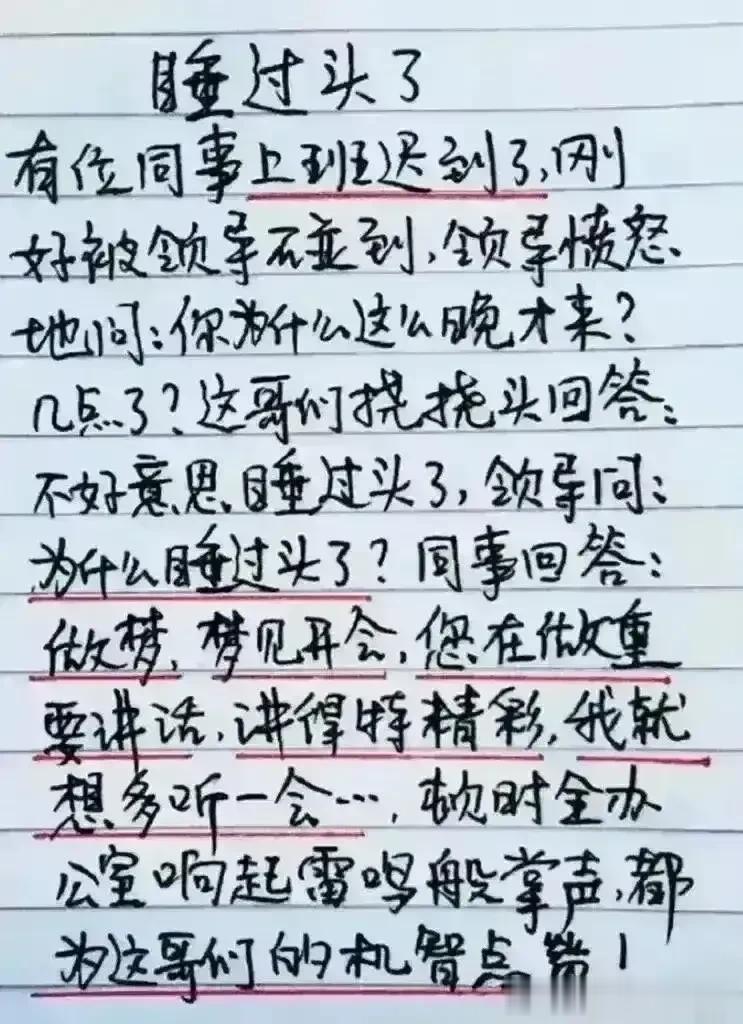 睡过头了
有位同事上班迟到了,刚
好被领导碰到,领导愤怒
地问:你为什么这么晚才来?
几点了?这哥们挠挠头回答:
不好意思,睡过头了,领导问:
为什么睡过头了?同事回答:
做梦,梦见开会,您在做重
要讲话,讲得特精彩,我就
想多听一会…,顿时全办
公室响起雷鸣般掌声,都
为这哥们的机智点赞!